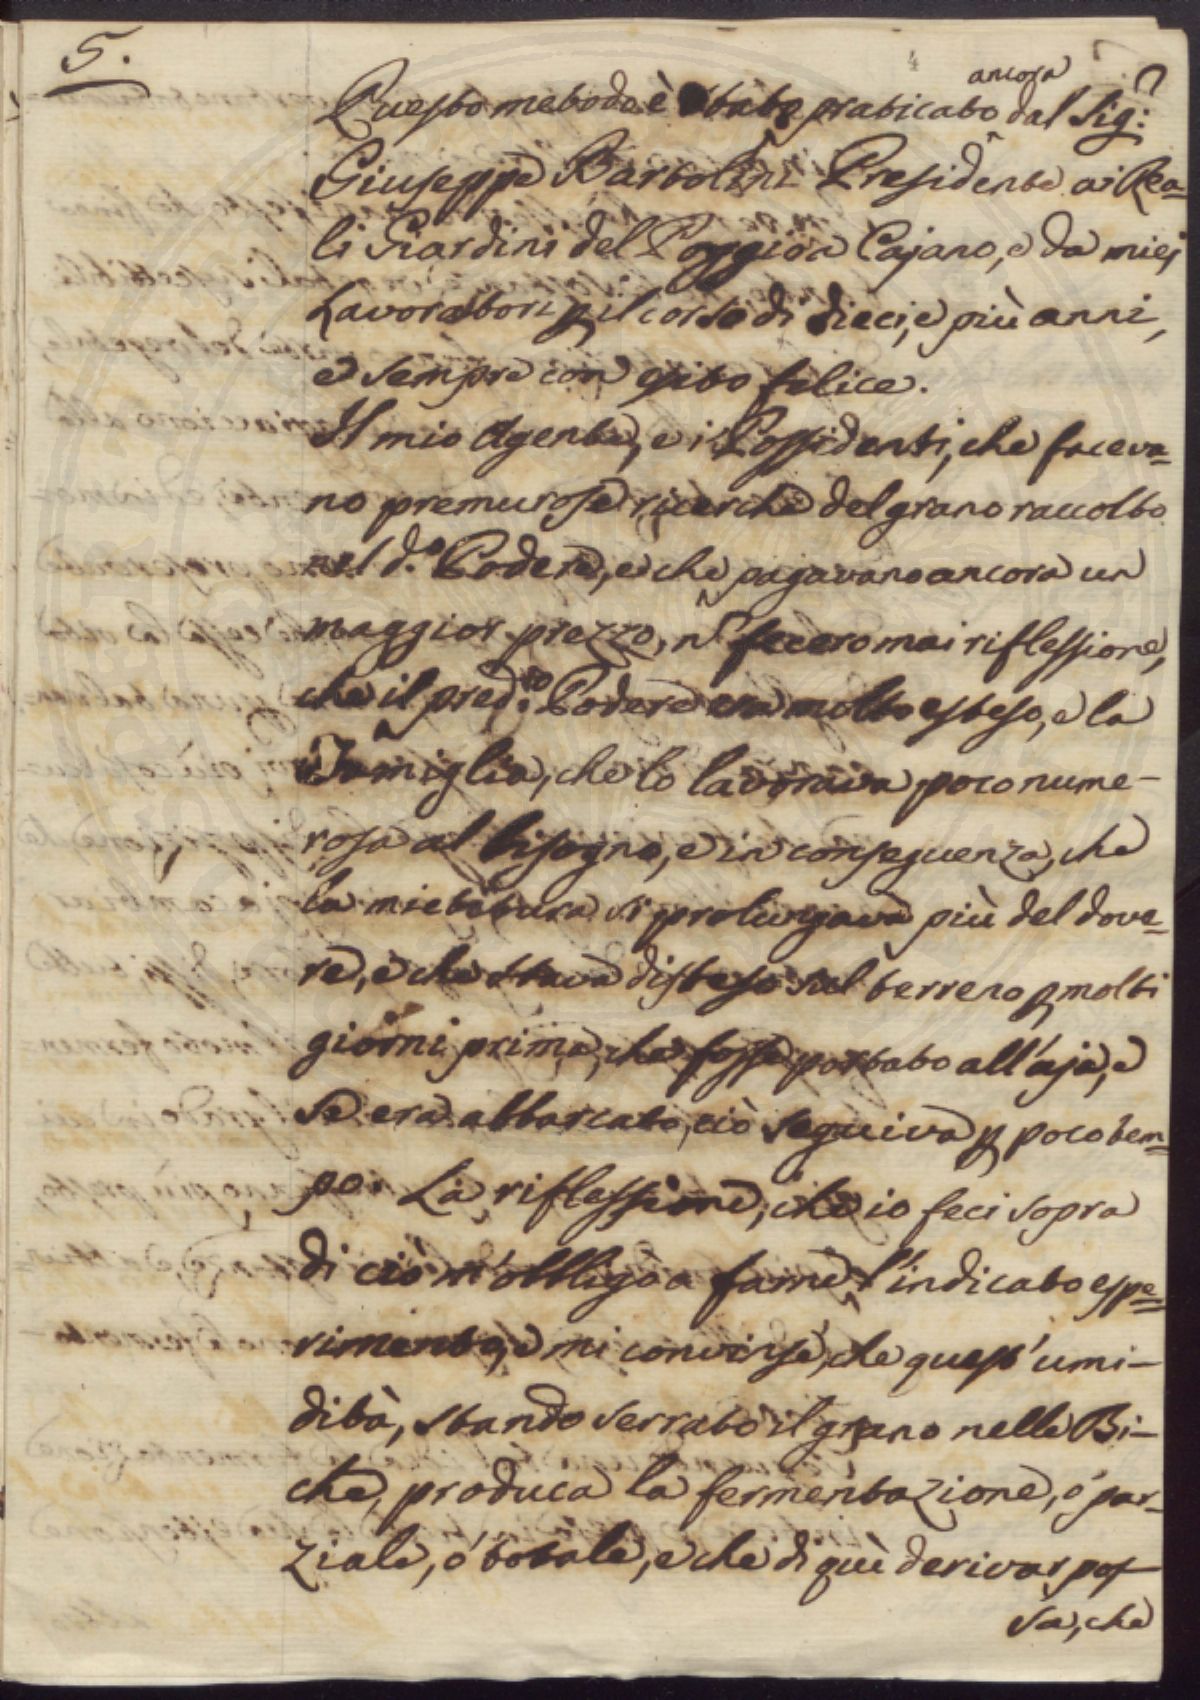 5.
ancora
Questo metodo è stato praticato dal Sig:
Giuseppe Bartolini Presidente ai Rea=
li Giardini del Poggio a Cajano, e da miei
Lavoratori p il corso di dieci, e più anni,
e sempre con esito felice.
Il mio Agente, e i Possidenti, che faceva=
no premurose ricerche del grano raccolto
nel d.o Podere, e che pagavano ancora un
maggior prezzo, n fecero mai riflessione,
che il pred.to Podere era molto esteso, e la
Famiglia, che lo lavorava, poco nume-
rosa al bisogno, e in conseguenza, che
la mietitura si prolungava più del dove=
re, e che stava disteso sul terreno p molti
giorni prima, che fosse portato all'aja, e
se era abbarcato, ciò seguiva p poco tem=
po. La riflessione, che io feci sopra
di ciò m'obbligò a farne l'indicato espe=
rimento, e mi convinse, che quest'umi-
dità, stando serrato il grano nelle Bi-
che, produca la fermentazione, ò par-
ziale, ò totale, e che di quì derivar pos-
sa, che